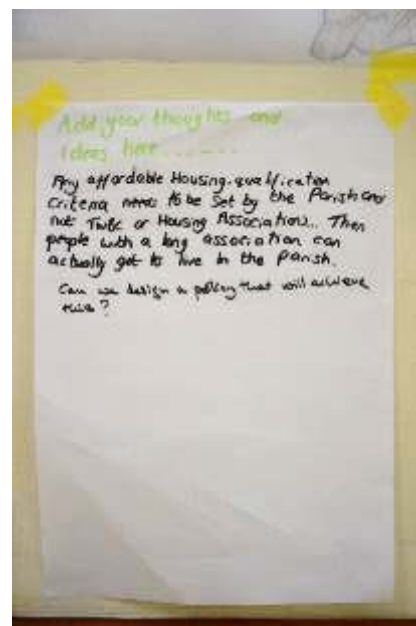 Add your thoughts and
Ideas here......
Any affordable Housing qualification
Criteria needs to be Set by the Parish and
not TWBC or Housing Associations... Then
people with a long association can
actually get to live in the Parish.
Can we design a policy that will achieve
this?